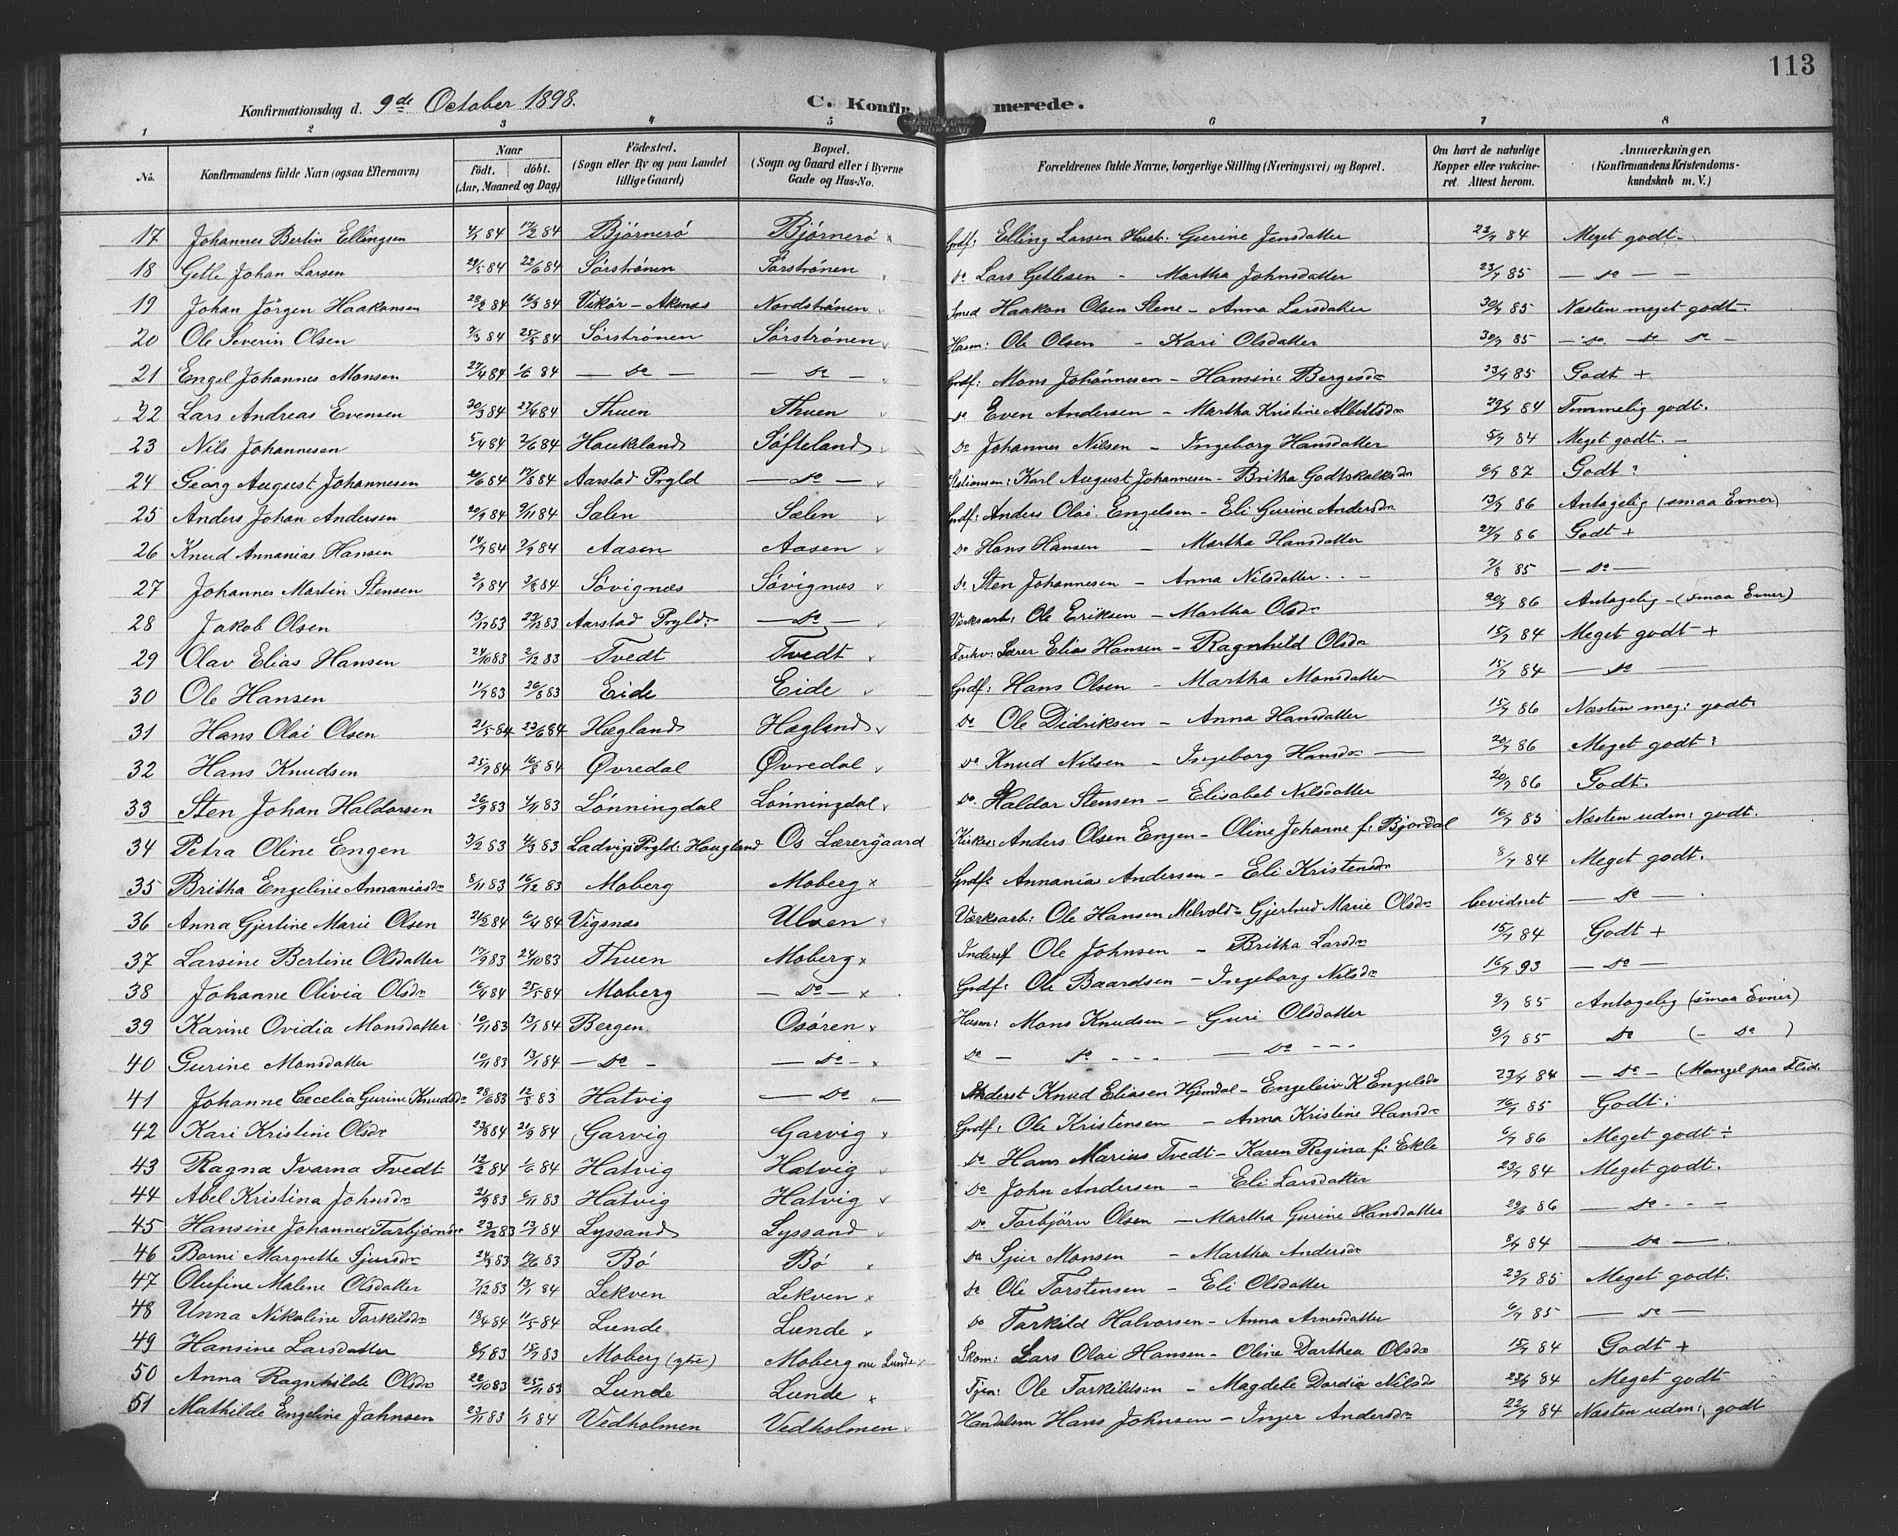 113
Konfirmationsdag d. 9de October 1898.
C. Konfirmerede.
1 2 3 4 5 6 7 8
No. Konfirmandens fulde Navn (ogsaa Efternavn) Naar Født. døbt. (Aar, Maaned og Dag) Fødested. (Sogn eller By og paa Landet tillige Gaard) Bopæl. (Sogn og Gaard eller i Byerne Gade og Hus-No. Forældrenes fulde Navne, borgerlige Stilling (Næringsvei) og Bopæl. Om havt de naturlige Kopper eller vakcineret. Attest herom. Anmærkninger. (Konfirmandens Kristendomskundskab m. V.)
17 Johannes Bertin Ellingsen 84 17/2 84 Bjørnerø Bjørnerø Grdf: Elling Larsen Hustr: Gurine Jensdatter 23/7 84 Meget godt
18 Getle Johan Larsen 29/5 84 22/6 84 Sørstrønen Sørstrønen Do Lars Getlesen - Martha Johnsdatter 23/7 85 — Do — —
19 Johan Jörgen Haakonsen 28/2 84 16/3 84 Vikør - Aksnæs Nordstrønen Smed Haakon Olsen Stene - Anna Larsdatter 30/7 85 Næsten meget godt.
20 Ole Severin Olsen 7/3 84 25/5 84 Sørstrønen Sørstrønen Husm: Ole Olsen - Kari Olsdatter 30/7 85 — Do Do Do —
21 Engel Johannes Monsen 27/4 84 1/6 84 — Do — — Do — Grdf: Mons Johannesen - Hansine Bergesdr 23/7 85 Godt +
22 Lars Andreas Evensen 20/3 84 27/4 84 Thuen Thuen Do Even Andersen - Martha Kristine Albertsdr 84 Temmelig godt.
23 Nils Johannesen 5/4 84 2/6 84 Haukeland Søfteland Do Johannes Nilsen - Ingeborg Hansdatter 5/7 84 Meget godt. -
24 Georg August Johannesen 84 17/8 84 Aarstad Prgld — Do — Karl August Johannesen - Britha Godtskalksdr 6/7 87 Godt
25 Anders Johan Andersen 20/9 84 9/11 84 Sælen Sælen Grdf: Anders Olai Engelsen - Eli Gurine Andersdr 13/9 86 Antagelig (smaa Evner)
26 Knud Annanias Hansen 84 84 Aasen Aasen Do Hans Hansen - Martha Hansdatter 27/7 86 Godt +
27 Johannes Martin Stensen 2/7 84 84 Søvignæs Søvignæs Do Sten Johannesen - Anna Nilsdatter 7/8 85 — Do —
28 Jakob Olsen 13/12 83 29/12 83 Aarstad Prgld — Do — Værksarb: Ole Eriksen - Martha Olsdr 20/7 86 Antagelig - (smaa Evner)
29 Olav Elias Hansen 24/10 83 2/12 83 Tvedt Tvedt Forhv: Lærer Elias Hansen - Ragnhild Olsdr 15/7 84 Meget godt +
30 Ole Hansen 11/7 83 26/8 83 Eide Eide Grdf: Hans Olsen - Martha Monsdatter 15/7 84 — Do —
31 Hans Olai Olsen 21/5 84 22/6 84 Hægland Hagland Do Ole Didriksen - Anna Hansdatter 15/7 86 Næsten meg: godt
32 Hans Knudsen 84 84 Øvredal Øvredal Do Knud Nilsen - Ingeborg Hansdr — 20/7 86 Meget godt
33 Sten Johan Haldorsen 26/9 83 4/11 83 Lønningdal Lønningdal Do. Haldor Stensen - Elisabet Nilsdatter 20/7 86 Godt.
34 Petra Oline Engen 3/2 83 4/3 83 Ladvigs Prgld: Haugland Os Lærergaard Kirkes: Anders Olsen Engen - Oline Johanne f: Bjordal 16/7 85 Næsten udm: godt.
35 Britha Engeline Annaniasdr 8/11 83 16/12 83 Moberg Moberg Grdf: Annania Andersen - Eli Kristensdr 8/7 84 Meget godt.
36 Anna Gjertine Marie Olsen 21/2 84 6/4 84 Vigsnæs Ulven Værksarb: Ole Hansen Melvold - Gjertrud Marie Olsdr bevidnet — Do —
37 Larsine Bertine Olsdatter 17/9 83 21/10 83 Thuen Moberg Inderst Ole Johnsen - Britha Larsdr 15/7 84 Godt +
38 Johanne Olivia Olsdr 16/4 84 25/5 84 Moberg — Do — Grdf: Ole Baardsen - Ingeborg Nilsdr 16/7 93 — Do —
39 Karine Ovidia Monsdatter 10/11 83 13/1 84 Bergen Osøren Husm: Mons Knudsen - Guri Olsdatter 9/7 85 Antagelig (smaa Evner)
40 Gurine Monsdatter 10/11 83 13/1 84 — Do - — Do — Do — Do - - - — Do - - - 9/7 85 Do (- Do )
41 Johanne Cecelia Gurine Knudsdr 28/6 83 12/8 83 Hatvig — Do — Inderst Knud Eliasen Hjendal - Engeleiv K Engelsdr 23/7 84 — Do — (Mangel paa Flid.
42 Kari Kristine Olsdr 84 21/9 84 Garvig Garvig Grdf: Ole Kristensen - Anna Kristine Hansdr 16/7 85 Godt
43 Ragna Ivarna Tvedt 12/2 84 1/6 84 Hatvig Hatvig Do Hans Marius Tvedt - Karen Regina f: Ekle 6/7 86 Meget godt
44 Abel Kristina Johnsdr 21/9 83 6/11 83 Hatvig Hatvig Do John Andersen - Eli Larsdatter 23/7 84 Meget godt.
45 Hansine Johannes Torbjørnsdr 83 13/1 84 Lyssand Lyssand Do Torbjørn Olsen - Martha Gurine Hansdatter 86 — Do - - -
46 Borni Margrethe Sjursdr 83 83 Bø Bø Do Sjur Monsen - Martha Andersdr 84 — Do —
47 Olufine Malene Olsdatter 7/12 83 13/1 84 Lekven Lekven Do Ole Torstensen - Eli Olsdatter 23/7 85 Meget godt.
48 Unna Nikoline Torkilsdr 18/4 84 11/5 84 Lunde Lunde Do Torkild Halvorsen - Anna Arnesdatter 6/7 85 — Do —
49 Hansine Larsdatter 8/7 83 83 Moberg (ytre) Moberg Lunde Skom: Lars Olai Hansen - Oline Dorthea Olsdr 15/7 84 Godt +
50 Anna Ragnhilde Olsdr 22/10 83 25/11 83 Lunde Lunde Tjen: Ole Torkildsen - Magdele Dordia Nilsdr 23/7 84 Meget godt
51 Mathilde Engeline Johnsen 23/11 83 1/1 84 Vedholmen Vedholmen Handelsm Hans Johnsen - Inger Andersdr 22/7 84 Næsten udm: godt